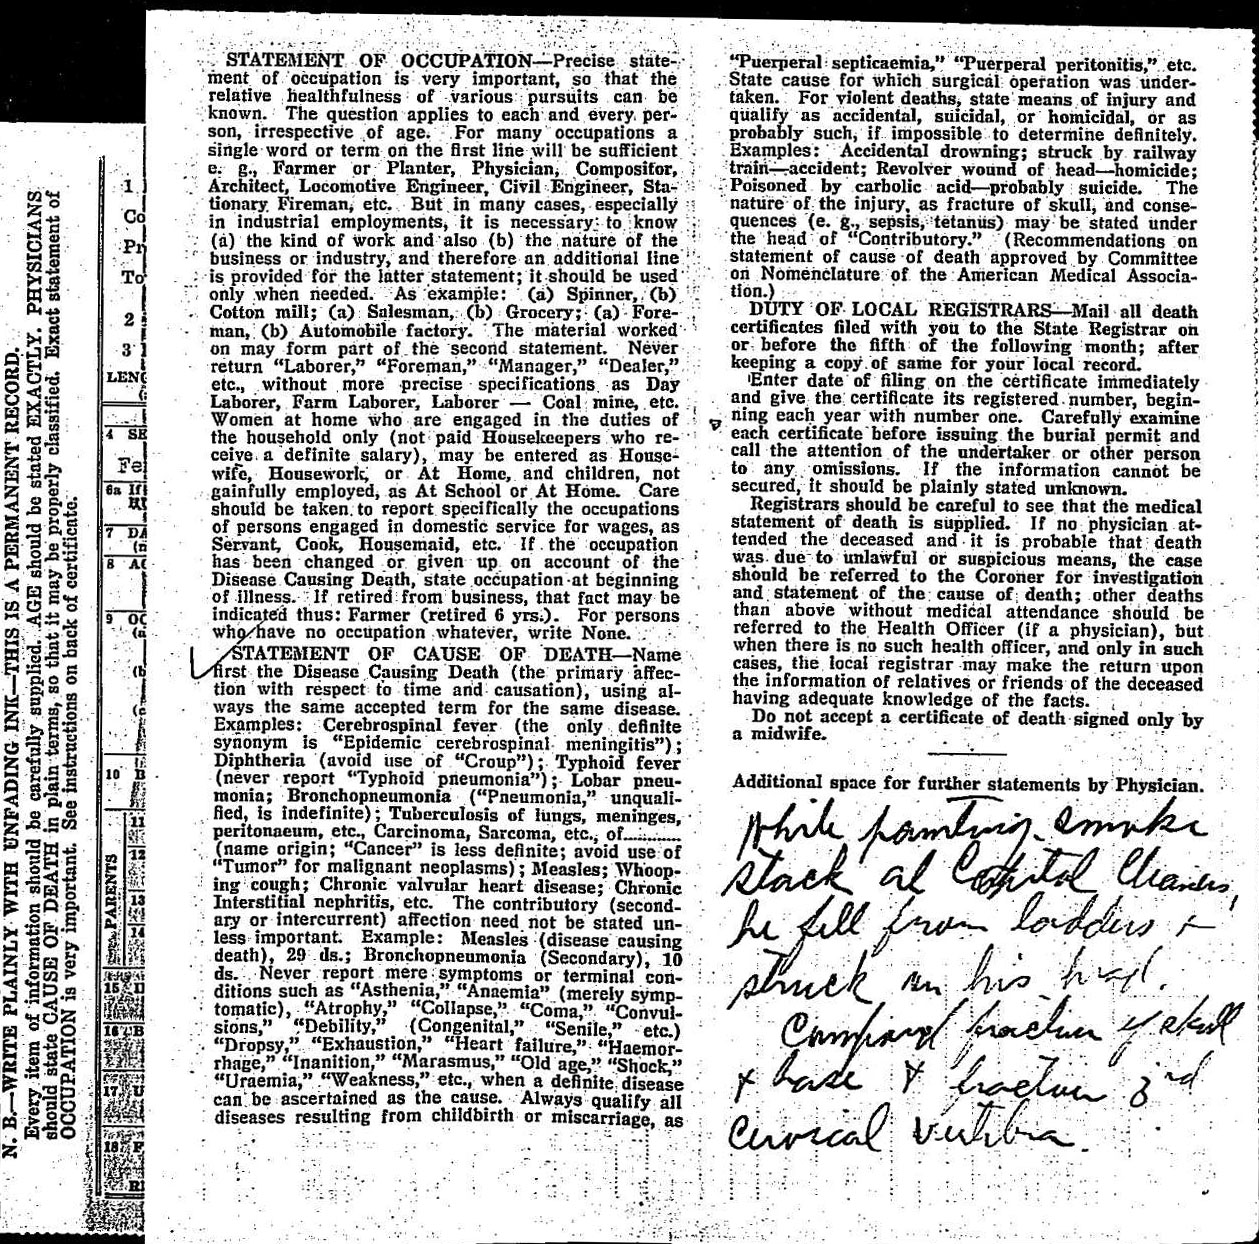 N. B.—WRITE PLAINLY WITH UNFADING INK—THIS IS A PERMANENT RECORD.
Every item of information should be carefully supplied. AGE should be stated EXACTLY. PHYSICIANS
should state CAUSE OF DEATH in plain terms, so that it may be properly classified. Exact statement of
OCCUPATION is very important. See instructions on back of certificate.
1
Co
Pr
To
2
3
LENG
4 SE
Fe
6a If
7 DA
8 AG
9 OC
(a
(b
(c
10
PARENTS
11
12
13
14
15
16
17 U
18
STATEMENT OF OCCUPATION—Precise state-
ment of occupation is very important, so that the
relative healthfulness of various pursuits can be
known. The question applies to each and every per-
son, irrespective of age. For many occupations a
single word or term on the first line will be sufficient
e. g., Farmer or Planter, Physician, Compositor,
Architect, Locomotive Engineer, Civil Engineer, Sta-
tionary Fireman, etc. But in many cases, especially
in industrial employments, it is necessary to know
(a) the kind of work and also (b) the nature of the
business or industry, and therefore an additional line
is provided for the latter statement; it should be used
only when needed. As example: (a) Spinner, (b)
Cotton mill; (a) Salesman, (b) Grocery; (a) Fore-
man, (b) Automobile factory. The material worked
on may form part of the second statement. Never
return "Laborer," "Foreman," "Manager," "Dealer,"
etc., without more precise specifications as Day
Laborer, Farm Laborer, Laborer — Coal mine, etc.
Women at home who are engaged in the duties of
the household only (not paid Housekeepers who re-
ceive a definite salary), may be entered as House-
wife, Housework, or At Home, and children, not
gainfully employed, as At School or At Home. Care
should be taken to report specifically the occupations
of persons engaged in domestic service for wages, as
Servant, Cook, Housemaid, etc. If the occupation
has been changed or given up on account of the
Disease Causing Death, state occupation at beginning
of illness. If retired from business, that fact may be
indicated thus: Farmer (retired 6 yrs.). For persons
who have no occupation whatever, write None.
STATEMENT OF CAUSE OF DEATH—Name
first the Disease Causing Death (the primary affec-
tion with respect to time and causation), using al-
ways the same accepted term for the same disease.
Examples: Cerebrospinal fever (the only definite
synonym is "Epidemic cerebrospinal meningitis");
Diphtheria (avoid use of "Croup"); Typhoid fever
(never report "Typhoid pneumonia"); Lobar pneu-
monia; Bronchopneumonia ("Pneumonia," unquali-
fied, is indefinite); Tuberculosis of lungs, meninges,
peritonaeum, etc., Carcinoma, Sarcoma, etc., of..........
(name origin; "Cancer" is less definite; avoid use of
"Tumor" for malignant neoplasms); Measles; Whoop-
ing cough; Chronic valvular heart disease; Chronic
Interstitial nephritis, etc. The contributory (second-
ary or intercurrent) affection need not be stated un-
less important. Example: Measles (disease causing
death), 29 ds.; Bronchopneumonia (Secondary), 10
ds. Never report mere symptoms or terminal con-
ditions such as "Asthenia," "Anaemia" (merely symp-
tomatic), "Atrophy," "Collapse," "Coma," "Convul-
sions," "Debility," (Congenital," "Senile," etc.)
"Dropsy," "Exhaustion," "Heart failure," "Haemor-
rhage," "Inanition," "Marasmus," "Old age," "Shock,"
"Uraemia," "Weakness," etc., when a definite disease
can be ascertained as the cause. Always qualify all
diseases resulting from childbirth or miscarriage, as
"Puerperal septicaemia," "Puerperal peritonitis," etc.
State cause for which surgical operation was under-
taken. For violent deaths, state means of injury and
qualify as accidental, suicidal, or homicidal, or as
probably such, if impossible to determine definitely.
Examples: Accidental drowning; struck by railway
train—accident; Revolver wound of head—homicide;
Poisoned by carbolic acid—probably suicide. The
nature of the injury, as fracture of skull, and conse-
quences (e. g., sepsis, tetanus) may be stated under
the head of "Contributory." (Recommendations on
statement of cause of death approved by Committee
on Nomenclature of the American Medical Associa-
tion.)
DUTY OF LOCAL REGISTRARS—Mail all death
certificates filed with you to the State Registrar on
or before the fifth of the following month; after
keeping a copy of same for your local record.
Enter date of filing on the certificate immediately
and give the certificate its registered number, begin-
ning each year with number one. Carefully examine
each certificate before issuing the burial permit and
call the attention of the undertaker or other person
to any omissions. If the information cannot be
secured, it should be plainly stated unknown.
Registrars should be careful to see that the medical
statement of death is supplied. If no physician at-
tended the deceased and it is probable that death
was due to unlawful or suspicious means, the case
should be referred to the Coroner for investigation
and statement of the cause of death; other deaths
than above without medical attendance should be
referred to the Health Officer (if a physician), but
when there is no such health officer, and only in such
cases, the local registrar may make the return upon
the information of relatives or friends of the deceased
having adequate knowledge of the facts.
Do not accept a certificate of death signed only by
a midwife.
Additional space for further statements by Physician.
While painting smoke
stack at Capital Cleaners,
he fell from ladders +
struck on his head.
Compound fracture of skull
+ base + fracture 3rd
cervical vertebra.